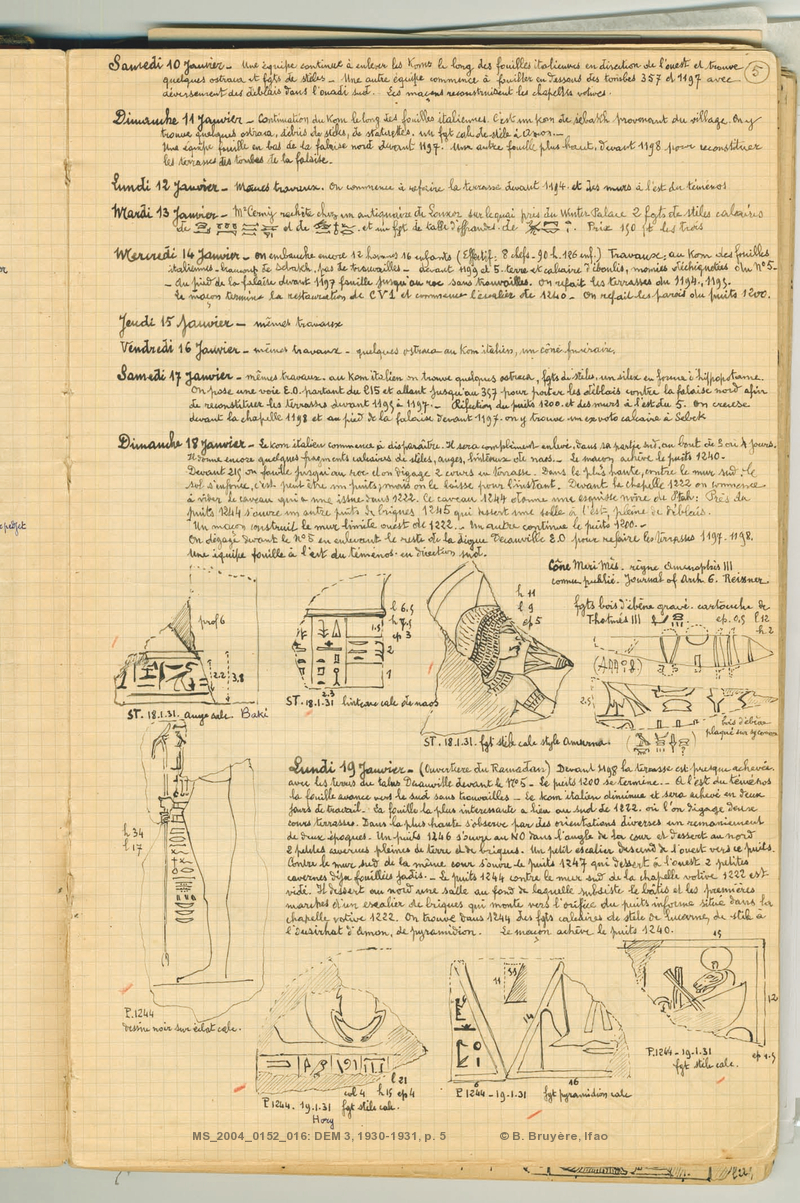 5
Samedi 10 Janvier – Une équipe continue à enlever les Koms le long des fouilles italiennes en direction de l'ouest et trouve
quelques ostraca et fgts de stèles – Une autre équipe commence à fouiller en dessous des tombes 357 et 1197 avec
déversement des déblais dans l'ouadi sud. Les maçons reconstruisent les chapelles votives.
Dimanche 11 Janvier – Continuation du Kom le long des fouilles italiennes. C'est un Kom de sebakh provenant du village. On y
trouve quelques ostraca, débris de stèles, de statuettes. un fgt calc. de stèle à Amon.–
Une équipe fouille en bas de la falaise nord devant 1197. Une autre fouille plus haut, devant 1198 pour reconstituer
les terrasses des tombes de la falaise.
Lundi 12 Janvier – Mêmes travaux. On commence à refaire la terrasse devant 1194 et des murs à l'est du téménos
Mardi 13 Janvier – Mr Cerny achète chez un antiquaire de Louxor sur le quai près du Winter Palace 2 fgts de stèles calcaires
de et de et un fgt de table d'offrandes de Prix 150 pt les trois
Mercredi 14 Janvier – on embauche encore 12 hommes 16 enfants (Effectif: 8 chefs – 90 h. 126 enf.) Travaux: au Kom des fouilles
italiennes – beaucoup de Sebakh, pas de trouvailles – devant 1194 et 5. terre et calcaire d'éboulis, momies déchiquetées du N°5 –
– Au pied de la falaise devant 1197 fouille jusqu'au roc sans trouvailles. On refait les terrasses du 1194, 1195.
Le maçon termine la restauration de CV1 et commence l'escalier de 1240 – On refait les parois du puits 1200.
Jeudi 15 Janvier – mêmes travaux
Vendredi 16 Janvier – mêmes travaux – quelques ostraca au Kom italien, un cône funéraire,
Samedi 17 Janvier – mêmes travaux. au Kom italien on trouve quelques ostraca, fgts de stèles, un silex en forme d'hippopotame.
On pose une voie E.O. partant du 215 et allant jusqu'au 357 pour porter les déblais contre la falaise nord afin
de reconstituer les terrasses devant 1195 à 1197. – Réfection du puits 1200 et des murs à l'est du 5. On creuse
devant la chapelle 1198 et au pied de la falaise devant 1197. on y trouve un ex voto calcaire à Sebek
Dimanche 18 Janvier – Le Kom italien commence à disparaître. Il sera complètement enlevé, dans sa partie sud, au bout de 3 ou 4 jours.
Il donne encore quelques fragments calcaires de stèles, auges, linteaux de naos. – Le maçon achève le puits 1240 –
Devant 215 on fouille jusqu'au roc et on dégage 2 cours en terrasse. Dans la plus haute, contre le mur sud le
sol s'enfonce, c'est peut être un puits, mais on le laisse pour l'instant. Devant la chapelle 1222 on commence
à vider le caveau qui a une issue dans 1222. Ce caveau 1244 donne une esquisse noire de Ptah: Près du
puits 1244 s'ouvre un autre puits de briques 1245 qui dessert une salle à l'est, pleine de déblais.
Un maçon construit le mur limite ouest de 1222. – Un autre continue le puits 1200. –
On dégage devant le N°5 en enlevant le reste de la digue Decauville E.O. pour refaire les terrasses 1197-1198.
Une équipe fouille à l'est du téménos en direction sud.
Cône Meri Mès. règne Aménophis III
connu, publié. Journal of Arch. 6. Reisner
fgts bois d'ébène gravé. cartouche de
Thotmès III
ep. 0,5 l 12
h. 2
prof 6
2.2
3,8
ST. 18.1.31. auge calc. Baki
l 6.5
h 7.5
ep 3
1.5
2
1
2.3
ST. 18.1.31 linteau calc de naos
h 11
l 9
ep 5
ST. 18.1.31. fgt stèle calc style Amarna.
2.5
bois d'ébène
plaqué sur sycomore
h 34
l 17
P. 1244
dessin noir sur éclat calc.
Lundi 19 Janvier – (Ouverture du Ramadan) Devant 1198 la terrasse est presque achevée
avec les terres du talus Decauville devant le N°5 – Le puits 1200 se termine. – A l'est du téménos
la fouille avance vers le sud sans trouvailles – Le Kom italien diminue et sera achevé en deux
jours de travail. – La fouille la plus intéressante a lieu au sud de 1222, où l'on dégage deux
cours terrasses. Dans la plus haute s'observe par des orientations diverses un remaniement
de deux époques. Un puits 1246 s'ouvre au NO dans l'angle de la cour et dessert au nord
2 petites cavernes pleines de terre et de briques. Un petit escalier descend de l'ouest vers ce puits.
Contre le mur sud de la même cour s'ouvre le puits 1247 qui dessert à l'ouest 2 petites
cavernes déjà fouillées jadis. – Le puits 1244 contre le mur sud de la chapelle votive 1222 est
vidé. Il dessert au nord une salle au fond de laquelle subsiste le bâtis et les premières
marches d'un escalier de briques qui monte vers l'orifice du puits informe situé dans la
chapelle votive 1222. On trouve dans 1244 des fgts calcaires de stèle de lucarne, de stèle à
l'Ousirhat d'Amon, de pyramidion. Le maçon achève le puits 1240.
l 21
col 4 h 15 ep 4
P. 1244 – 19.1.31 fgt stèle calc.
Hory
11
14
6
16
P. 1244 – 19.1.31 fgt pyramidion calc
15
12
ep 1.5
P. 1244 – 19.1.31
fgt stèle calc.
MS_2004_0152_016: DEM 3, 1930-1931, p. 5 © B. Bruyère, Ifao